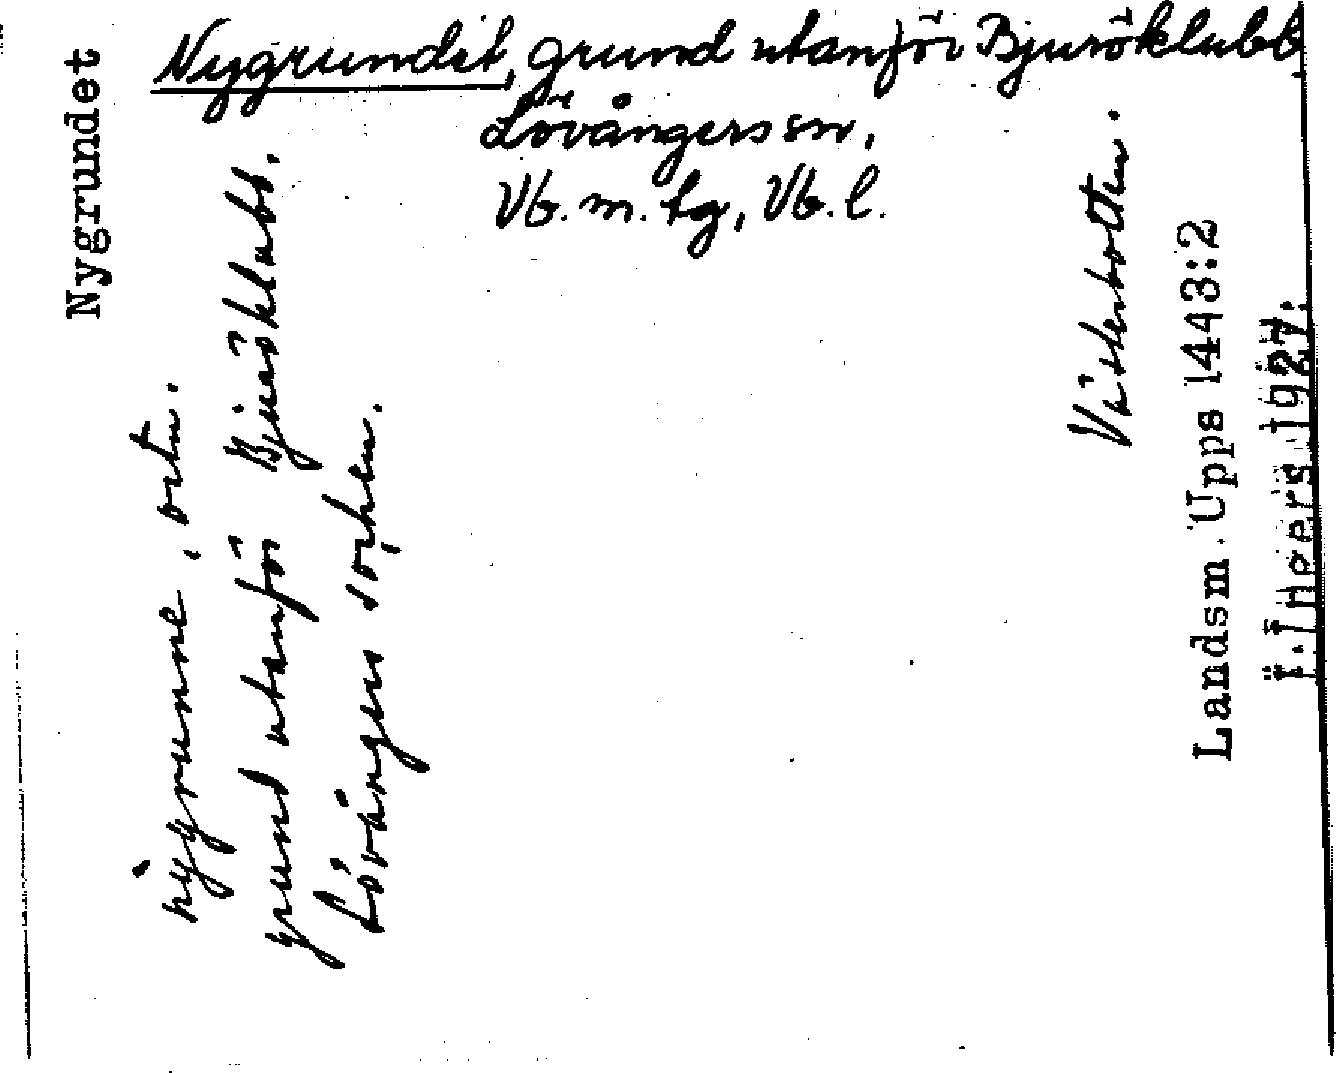 Nygrundet, grund utanför Bjuröklubb
Lövångers sn,
Vb. m. tg, Vb. l.
Nygrundet
nygrunne, ortn.
grund utanför Bjuröklubb.
Lövångers socken.
Västerbotten.
Landsm. Upps 1443:2
1927.